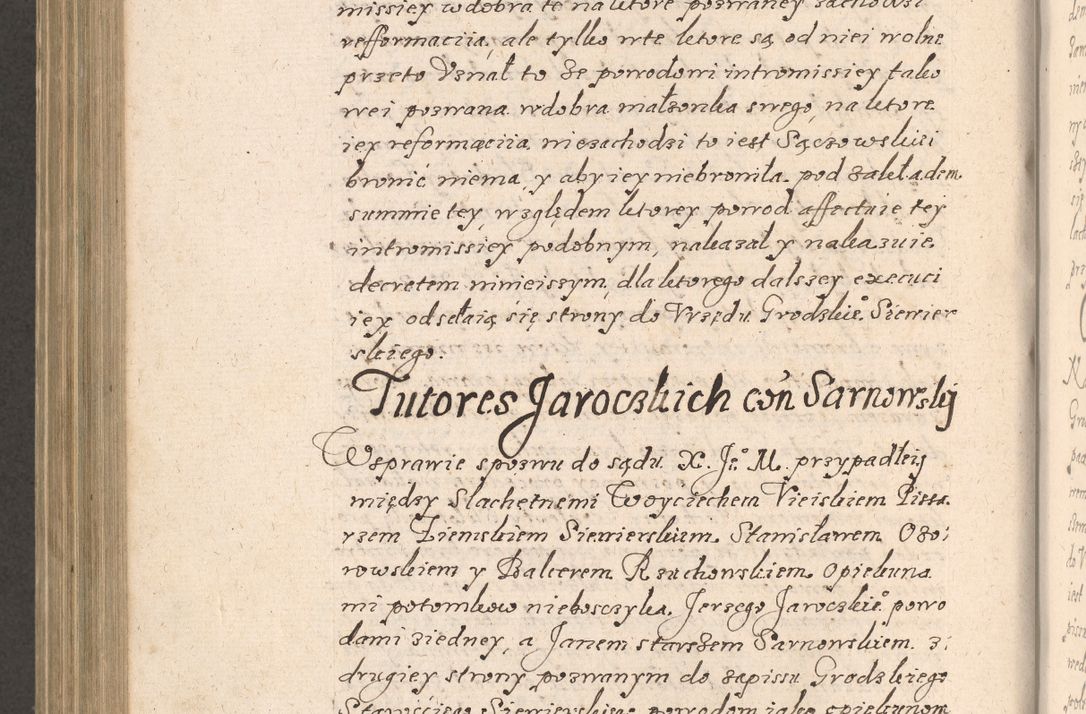 missiey w dobra te na ktore pozwaney zachowsi
refformaciia, ale tylko w te ktore są od niei wolne
przeto Vznał to że powodowi intromissiey tako
wei pozwana w dobra małzonka swego, na ktore
iey reformaciia niezachodzi to iest Sączowskiei
bronić niema, y aby iey niebroniła pod zakładem
summie tey, względem ktorey powod affectuie tey
intromissiey podobnym, nakazał y nakazuie
decretem ninieiszym, dla ktorego dalszey execuci
iey odsełaią się strony do Vrzędu Grodzkie° Siewier
skiego.
Tutores Jaroczkich con Sarnowskij
W sprawie z pozwu do sądu X. Je° M. przypadłeij
między Slachetnemi Woyciechem Vieiskiem Pissa
rzem Ziemskiem Siewierskiem Stanisławem Ożo:
rowskiem y Balcerem Rzuchowskiem Opiekuna
mi potomkow nieboszczyka Jerzego Jaroczkie° powo
dami z iedney, a Janem starszem Sarnowskiem z:
drugiey strony pozwanym do zapissu Grodzkiego
Siewierskiego powodom iako opiekunom